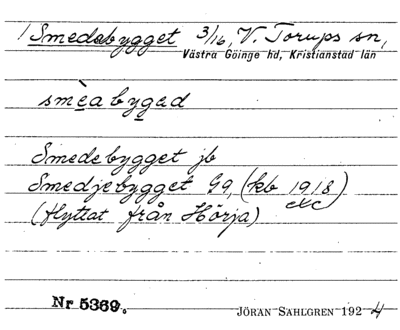 1 Smedebygget 3/16, V. Torups sn,
Västra Göinge hd, Kristianstad län
smèabygad
Smedebygget jb
Smedjebygget G9, (kb 1918)
etc
(flyttat från Hörja)
Nr 5369.
JÖRAN SAHLGREN 1924